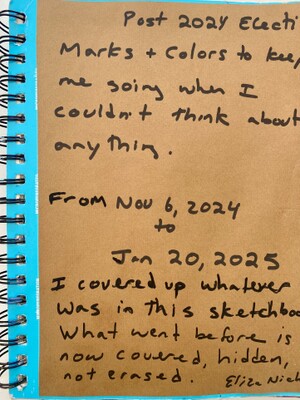 Post 2024 Electi
Marks + Colors to keep
me soing when I
couldn't think about
anything.
From Nov 6, 2024
to
Jan 20, 2025
I covered up whatever
was in this sketchboo
What went before is
now covered, hidden,
not erased. Eliza Nich